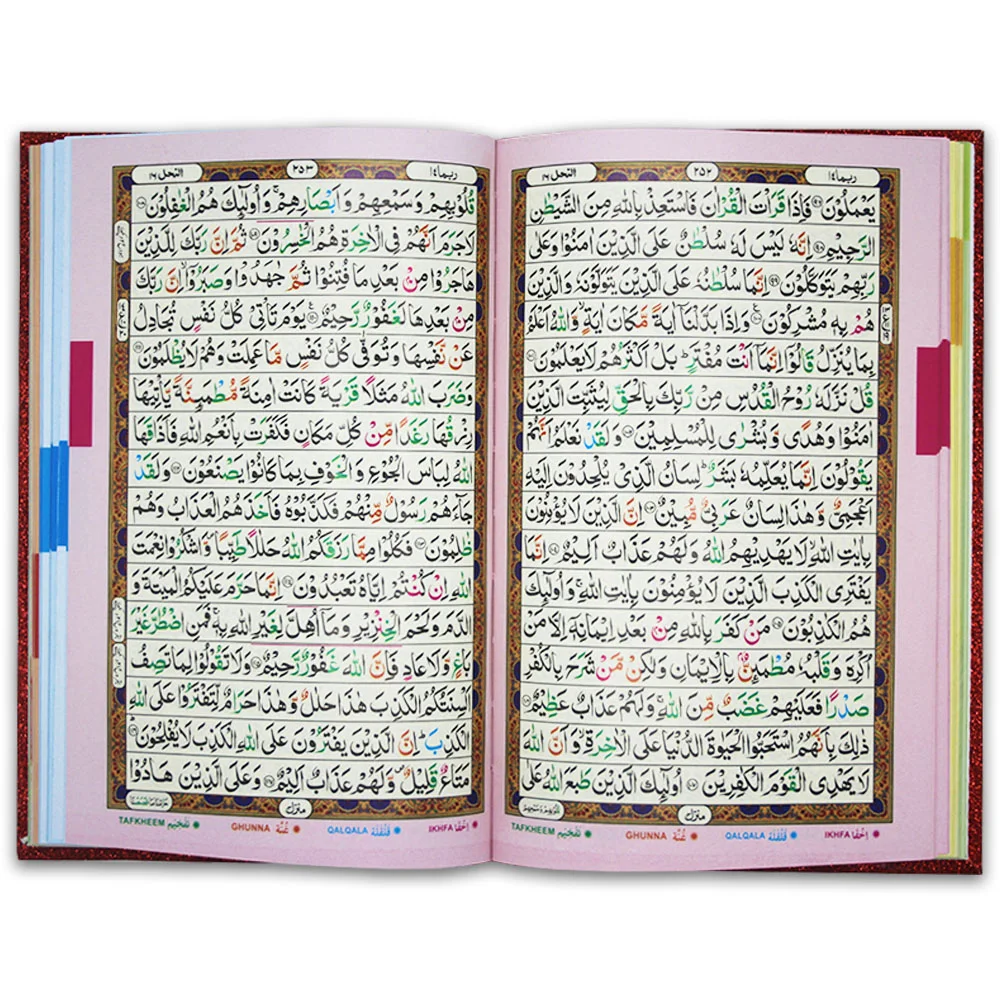 ربما ١٤ ٢٥٢ النحل ١٦
يَعْمَلُوْنَ ﴿٩٧﴾ فَاِذَا قَرَاْتَ الْقُرْاٰنَ فَاسْتَعِذْ بِاللّٰهِ مِنَ الشَّيْطٰنِ
الرَّجِيْمِ ﴿٩٨﴾ اِنَّهٗ لَيْسَ لَهٗ سُلْطٰنٌ عَلَى الَّذِيْنَ اٰمَنُوْا وَعَلٰى
رَبِّهِمْ يَتَوَكَّلُوْنَ ﴿٩٩﴾ اِنَّمَا سُلْطٰنُهٗ عَلَى الَّذِيْنَ يَتَوَلَّوْنَهٗ وَالَّذِيْنَ
هُمْ بِهٖ مُشْرِكُوْنَ ﴿١٠٠﴾ وَاِذَا بَدَّلْنَاۤ اٰيَةً مَّكَانَ اٰيَةٍ وَّاللّٰهُ اَعْلَمُ
بِمَا يُنَزِّلُ قَالُوْۤا اِنَّمَاۤ اَنْتَ مُفْتَرٍ ؕ بَلْ اَكْثَرُهُمْ لَا يَعْلَمُوْنَ
قُلْ نَزَّلَهٗ رُوْحُ الْقُدُسِ مِنْ رَّبِّكَ بِالْحَقِّ لِيُثَبِّتَ الَّذِيْنَ
اٰمَنُوْا وَهُدًى وَّبُشْرٰى لِلْمُسْلِمِيْنَ ﴿١٠٢﴾ وَلَقَدْ نَعْلَمُ اَنَّهُمْ
يَقُوْلُوْنَ اِنَّمَا يُعَلِّمُهٗ بَشَرٌ ؕ لِسَانُ الَّذِيْ يُلْحِدُوْنَ اِلَيْهِ
اَعْجَمِيٌّ وَّهٰذَا لِسَانٌ عَرَبِيٌّ مُّبِيْنٌ ﴿١٠٣﴾ اِنَّ الَّذِيْنَ لَا يُؤْمِنُوْنَ
بِاٰيٰتِ اللّٰهِ ۙ لَا يَهْدِيْهِمُ اللّٰهُ وَلَهُمْ عَذَابٌ اَلِيْمٌ ﴿١٠٤﴾ اِنَّمَا
يَفْتَرِى الْكَذِبَ الَّذِيْنَ لَا يُؤْمِنُوْنَ بِاٰيٰتِ اللّٰهِ ۚ وَاُولٰٓئِكَ
هُمُ الْكٰذِبُوْنَ ﴿١٠٥﴾ مَنْ كَفَرَ بِاللّٰهِ مِنْۢ بَعْدِ اِيْمَانِهٖۤ اِلَّا مَنْ
اُكْرِهَ وَقَلْبُهٗ مُطْمَئِنٌّۢ بِالْاِيْمَانِ وَلٰكِنْ مَّنْ شَرَحَ بِالْكُفْرِ
صَدْرًا فَعَلَيْهِمْ غَضَبٌ مِّنَ اللّٰهِ ۚ وَلَهُمْ عَذَابٌ عَظِيْمٌ ﴿١٠٦﴾
ذٰلِكَ بِاَنَّهُمُ اسْتَحَبُّوا الْحَيٰوةَ الدُّنْيَا عَلَى الْاٰخِرَةِ ۙ وَاَنَّ اللّٰهَ
لَا يَهْدِى الْقَوْمَ الْكٰفِرِيْنَ ﴿١٠٧﴾ اُولٰٓئِكَ الَّذِيْنَ طَبَعَ اللّٰهُ عَلٰى
منزل
IKHFA اِخْفَا QALQALA قَلْقَلَه GHUNNA غُنَّه TAFKHEEM تَفْخِيْم
ربما ١٤ ٢٥٣ النحل ١٦
قُلُوْبِهِمْ وَسَمْعِهِمْ وَاَبْصَارِهِمْ ۚ وَاُولٰٓئِكَ هُمُ الْغٰفِلُوْنَ ﴿١٠٨﴾
لَا جَرَمَ اَنَّهُمْ فِى الْاٰخِرَةِ هُمُ الْخٰسِرُوْنَ ﴿١٠٩﴾ ثُمَّ اِنَّ رَبَّكَ لِلَّذِيْنَ
هَاجَرُوْا مِنْۢ بَعْدِ مَا فُتِنُوْا ثُمَّ جٰهَدُوْا وَصَبَرُوْۤا ۙ اِنَّ رَبَّكَ
مِنْۢ بَعْدِهَا لَغَفُوْرٌ رَّحِيْمٌ ﴿١١٠﴾ يَوْمَ تَاْتِيْ كُلُّ نَفْسٍ تُجَادِلُ
عَنْ نَّفْسِهَا وَتُوَفّٰى كُلُّ نَفْسٍ مَّا عَمِلَتْ وَهُمْ لَا يُظْلَمُوْنَ
وَضَرَبَ اللّٰهُ مَثَلًا قَرْيَةً كَانَتْ اٰمِنَةً مُّطْمَئِنَّةً يَّاْتِيْهَا
رِزْقُهَا رَغَدًا مِّنْ كُلِّ مَكَانٍ فَكَفَرَتْ بِاَنْعُمِ اللّٰهِ فَاَذَاقَهَا
اللّٰهُ لِبَاسَ الْجُوْعِ وَالْخَوْفِ بِمَا كَانُوْا يَصْنَعُوْنَ ﴿١١٢﴾ وَلَقَدْ
جَآءَهُمْ رَسُوْلٌ مِّنْهُمْ فَكَذَّبُوْهُ فَاَخَذَهُمُ الْعَذَابُ وَهُمْ
ظٰلِمُوْنَ ﴿١١٣﴾ فَكُلُوْا مِمَّا رَزَقَكُمُ اللّٰهُ حَلٰلًا طَيِّبًا وَّاشْكُرُوْا نِعْمَتَ
اللّٰهِ اِنْ كُنْتُمْ اِيَّاهُ تَعْبُدُوْنَ ﴿١١٤﴾ اِنَّمَا حَرَّمَ عَلَيْكُمُ الْمَيْتَةَ وَ
الدَّمَ وَلَحْمَ الْخِنْزِيْرِ وَمَاۤ اُهِلَّ لِغَيْرِ اللّٰهِ بِهٖ ۚ فَمَنِ اضْطُرَّ غَيْرَ
بَاغٍ وَّلَا عَادٍ فَاِنَّ اللّٰهَ غَفُوْرٌ رَّحِيْمٌ ﴿١١٥﴾ وَلَا تَقُوْلُوْا لِمَا تَصِفُ
اَلْسِنَتُكُمُ الْكَذِبَ هٰذَا حَلٰلٌ وَّهٰذَا حَرَامٌ لِّتَفْتَرُوْا عَلَى اللّٰهِ
الْكَذِبَ ؕ اِنَّ الَّذِيْنَ يَفْتَرُوْنَ عَلَى اللّٰهِ الْكَذِبَ لَا يُفْلِحُوْنَ ﴿١١٦﴾
مَتَاعٌ قَلِيْلٌ ۪ وَّلَهُمْ عَذَابٌ اَلِيْمٌ ﴿١١٧﴾ وَعَلَى الَّذِيْنَ هَادُوْا
منزل
IKHFA اِخْفَا QALQALA قَلْقَلَه GHUNNA غُنَّه TAFKHEEM تَفْخِيْم